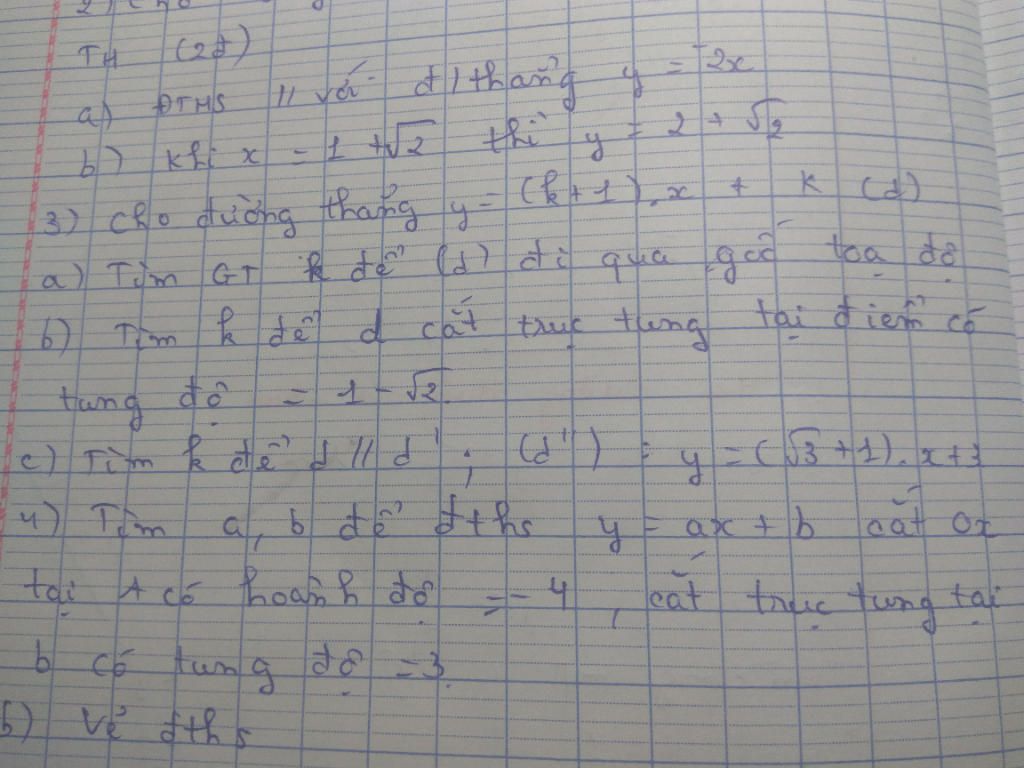 2) cho
TH (2đ)
a) ĐTHS // với đ/thẳng y = -2x
b) khi x = 1 + √2 thì y = 2 + √2
3) cho đường thẳng y = (k+1).x + k (d)
a) Tìm GT k để (d) đi qua gốc toạ độ
b) Tìm k để d cắt trục tung tại điểm có
tung độ = 1 - √2.
c) Tìm k để d // d' ; (d') : y = (√3 + 1).x + 3
4) Tìm a, b để đths y = ax + b cắt Ox
tại A có hoành độ = - 4, cắt trục tung tại
b có tung độ = 3.
5) Vẽ đths